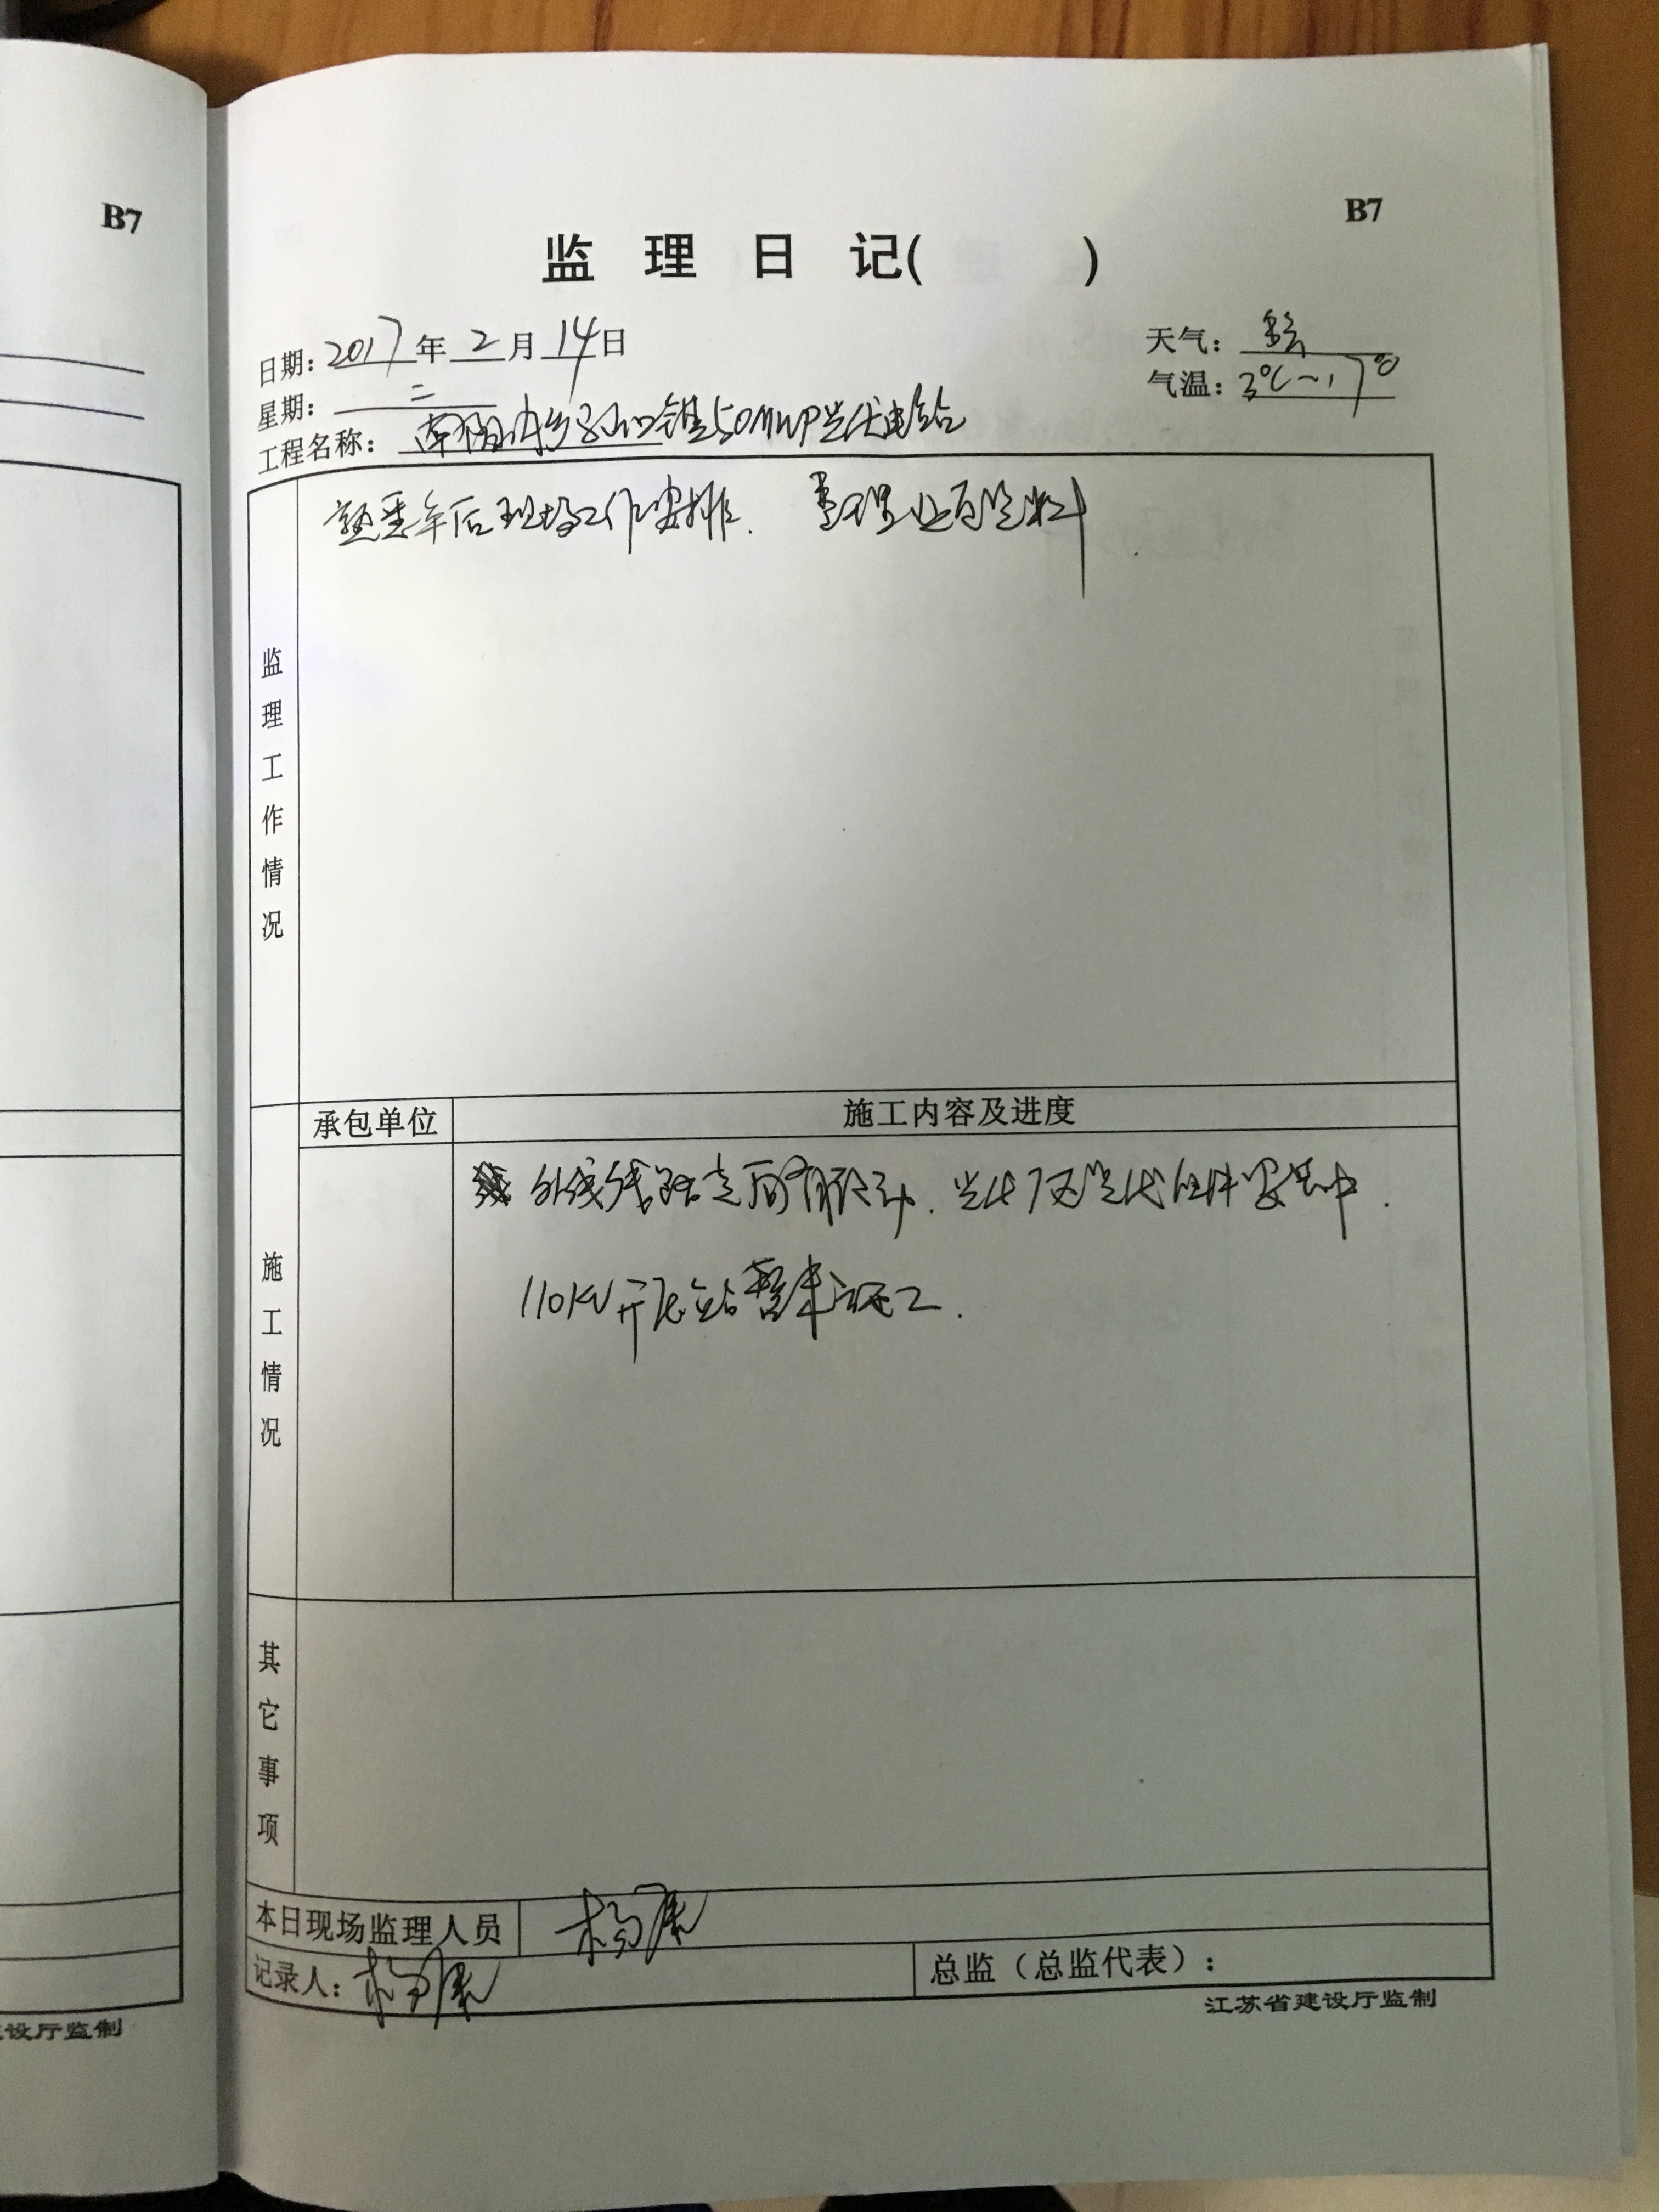 B7
B7
监 理 日 记( )
日期: 2017 年 2 月 14 日
天气:
星期: 二
气温: 3℃~17℃
工程名称: 南阳内乡 50MWP光伏电站
熟悉年后现场工作安排. 整理 资料
监理工作情况
承包单位
施工内容及进度
外线线路走向有 . 光伏区光伏组件安装中.
110KV开 站暂未施工.
施工情况
其它事项
本日现场监理人员
记录人:
总监（总监代表）:
江苏省建设厅监制
设厅监制